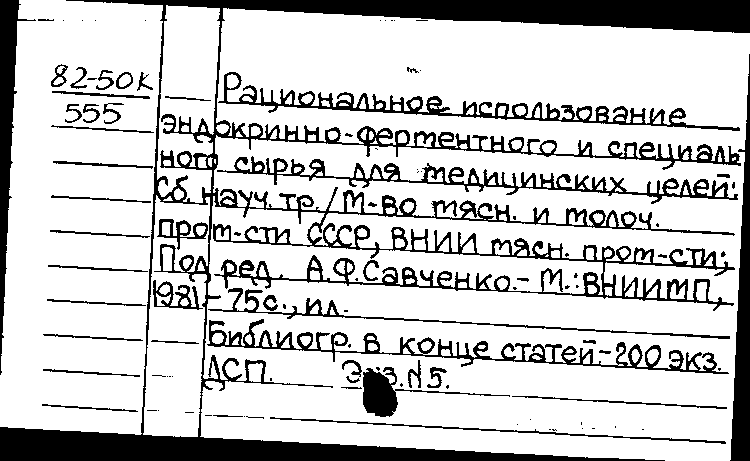 82-50К
555
Рациональное использование
эндокринно-ферментного и специаль-
ного сырья для медицинских целей:
Сб. науч. тр./М-во мясн. и молоч.
пром-сти СССР, ВНИИ мясн. пром-сти;
Под ред. А.Ф.Савченко.- М.:ВНИИМП,
1981.- 75с., ил.
Библиогр. в конце статей.- 200 экз.
ДСП. Экз.N5.